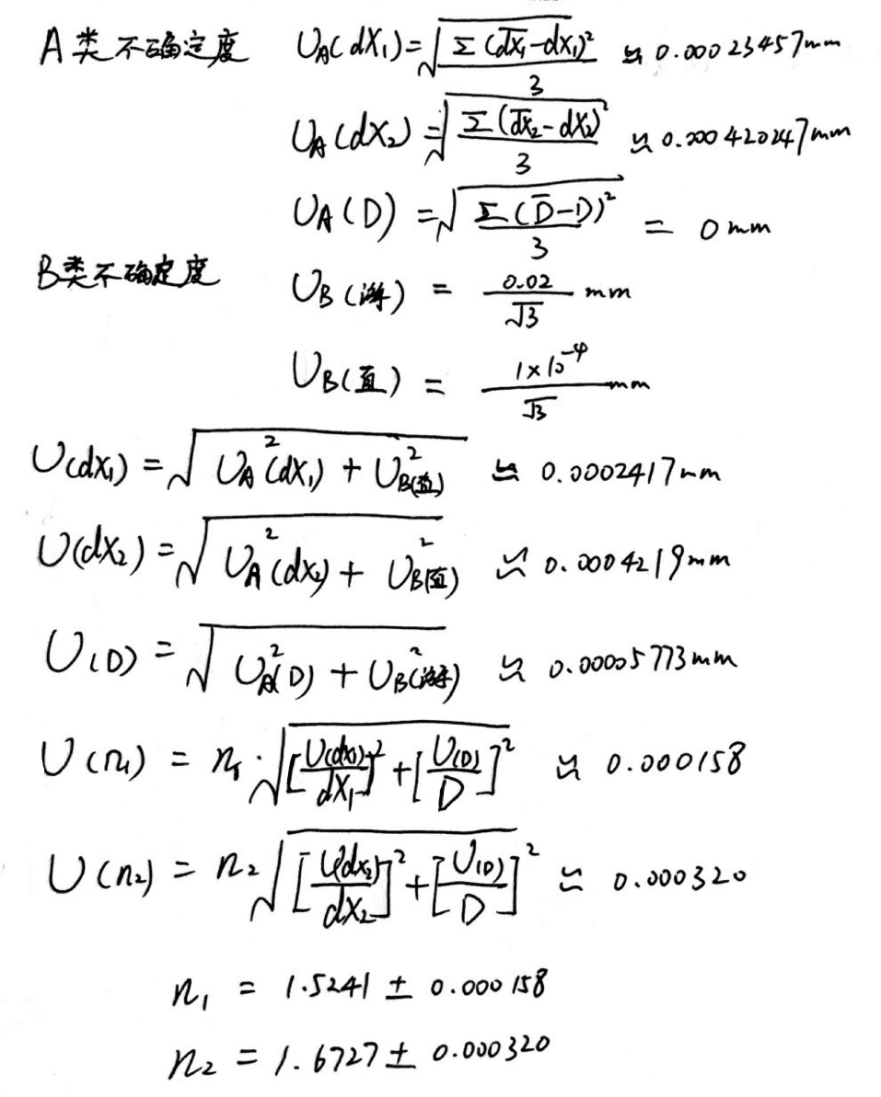 A类不确定度 U_A(dX₁)=√(Σ(d̅X̅₁-dX₁)²/3) ≌ 0.00023457mm
U_A(dX₂)=√(Σ(d̅X̅₂-dX₂)²/3) ≌ 0.000420247mm
U_A(D)=√(Σ(D̅-D)²/3) = 0mm
B类不确定度 U_B(游) = 0.02/√3 mm
U_B(直) = 1×10⁻⁴/√3 mm
U(dX₁)=√(U_A²(dX₁)+U²_B(直)) ≌ 0.0002417mm
U(dX₂)=√(U_A²(dX₂)+U²_B(直)) ≌ 0.0004219mm
U(D)=√(U_A²(D)+U_B²(游)) ≌ 0.00005773mm
U(n₁) = n₁·√([U(dX₁)/dX₁]²+[U(D)/D]²) ≌ 0.000158
U(n₂) = n₂√([U(dX₂)/dX₂]²+[U(D)/D]²) ≌ 0.000320
n₁ = 1.5241 ± 0.000158
n₂ = 1.6727 ± 0.000320